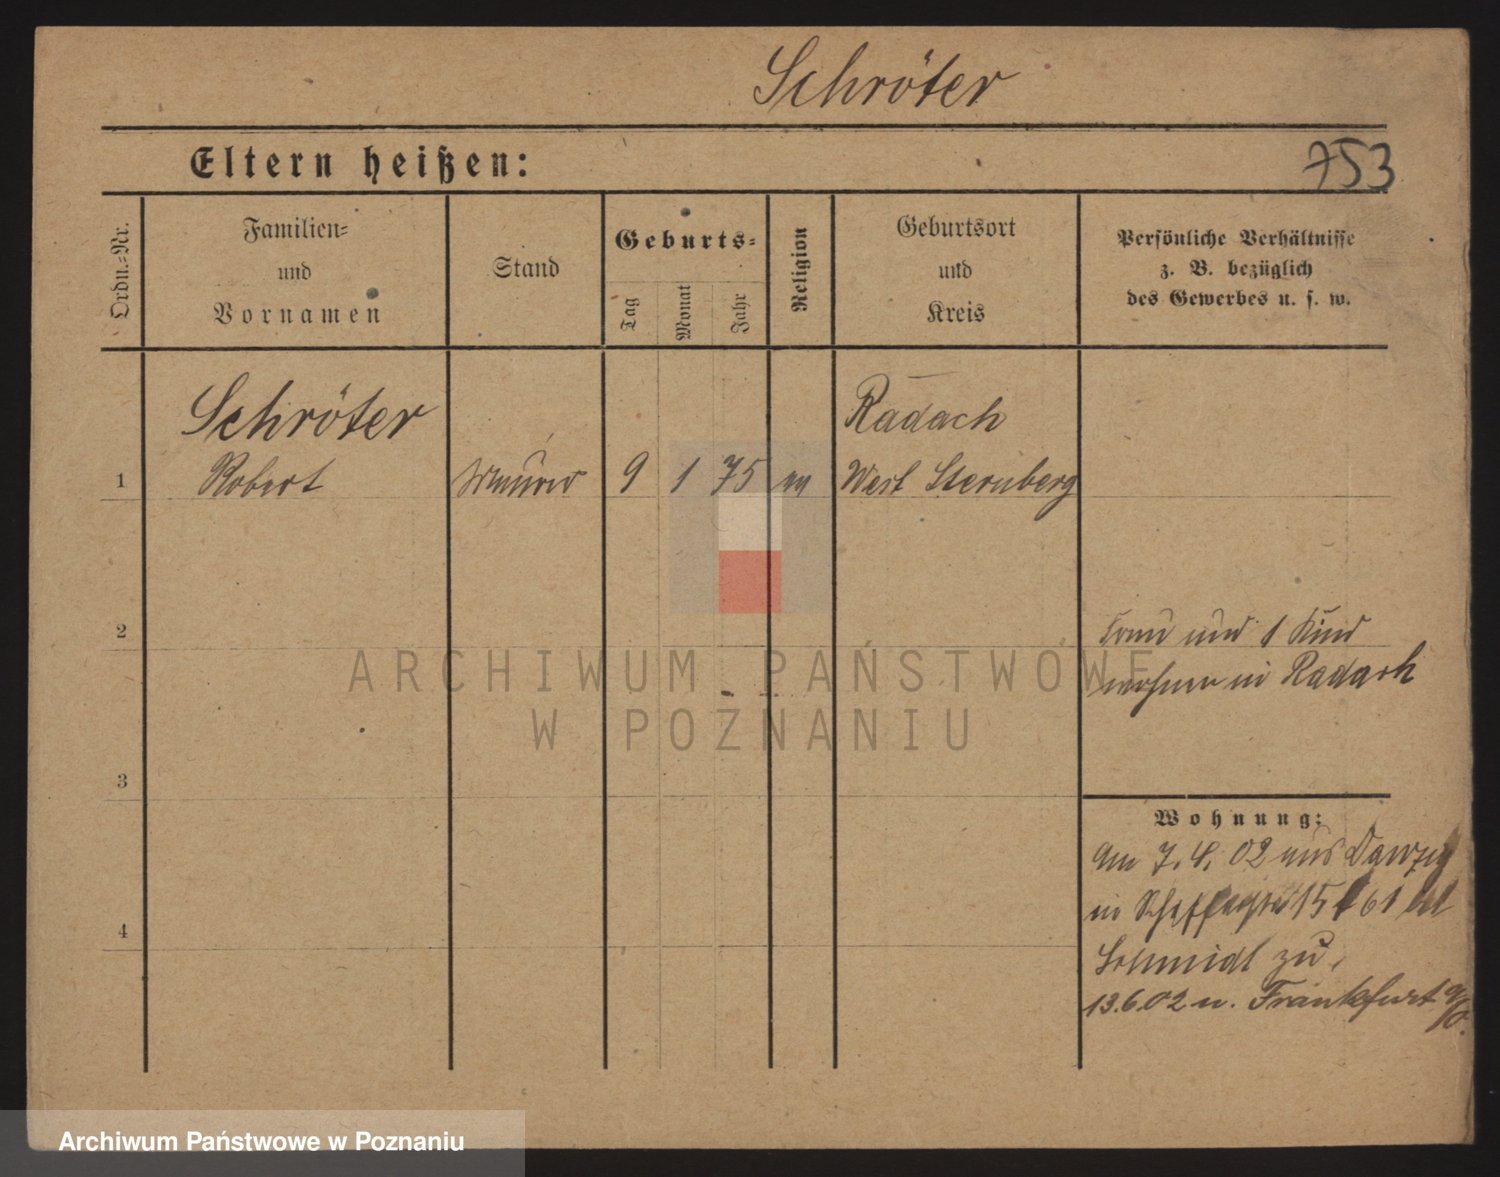 Schröter
Eltern heißen:
753
Ordn.-Nr.
Familien-
und
Vornamen
Stand
Geburts-
Tag
Monat
Jahr
Religion
Geburtsort
und
Kreis
Persönliche Verhältnisse
z. B. bezüglich
des Gewerbes u. s. w.
Schröter
Radach
1
Robert
Maurer
9
1
75
ev
West Sternberg
2
Frau und 1 Kind
wohnen in Radach
3
Wohnung:
Am 7. 4. 02 aus Danzig
in 15 61 bei
4
Schmidt zu.
13.6.02 n. Frankfurt a/O.
ARCHIWUM PAŃSTWOWE
W POZNANIU
Archiwum Państwowe w Poznaniu